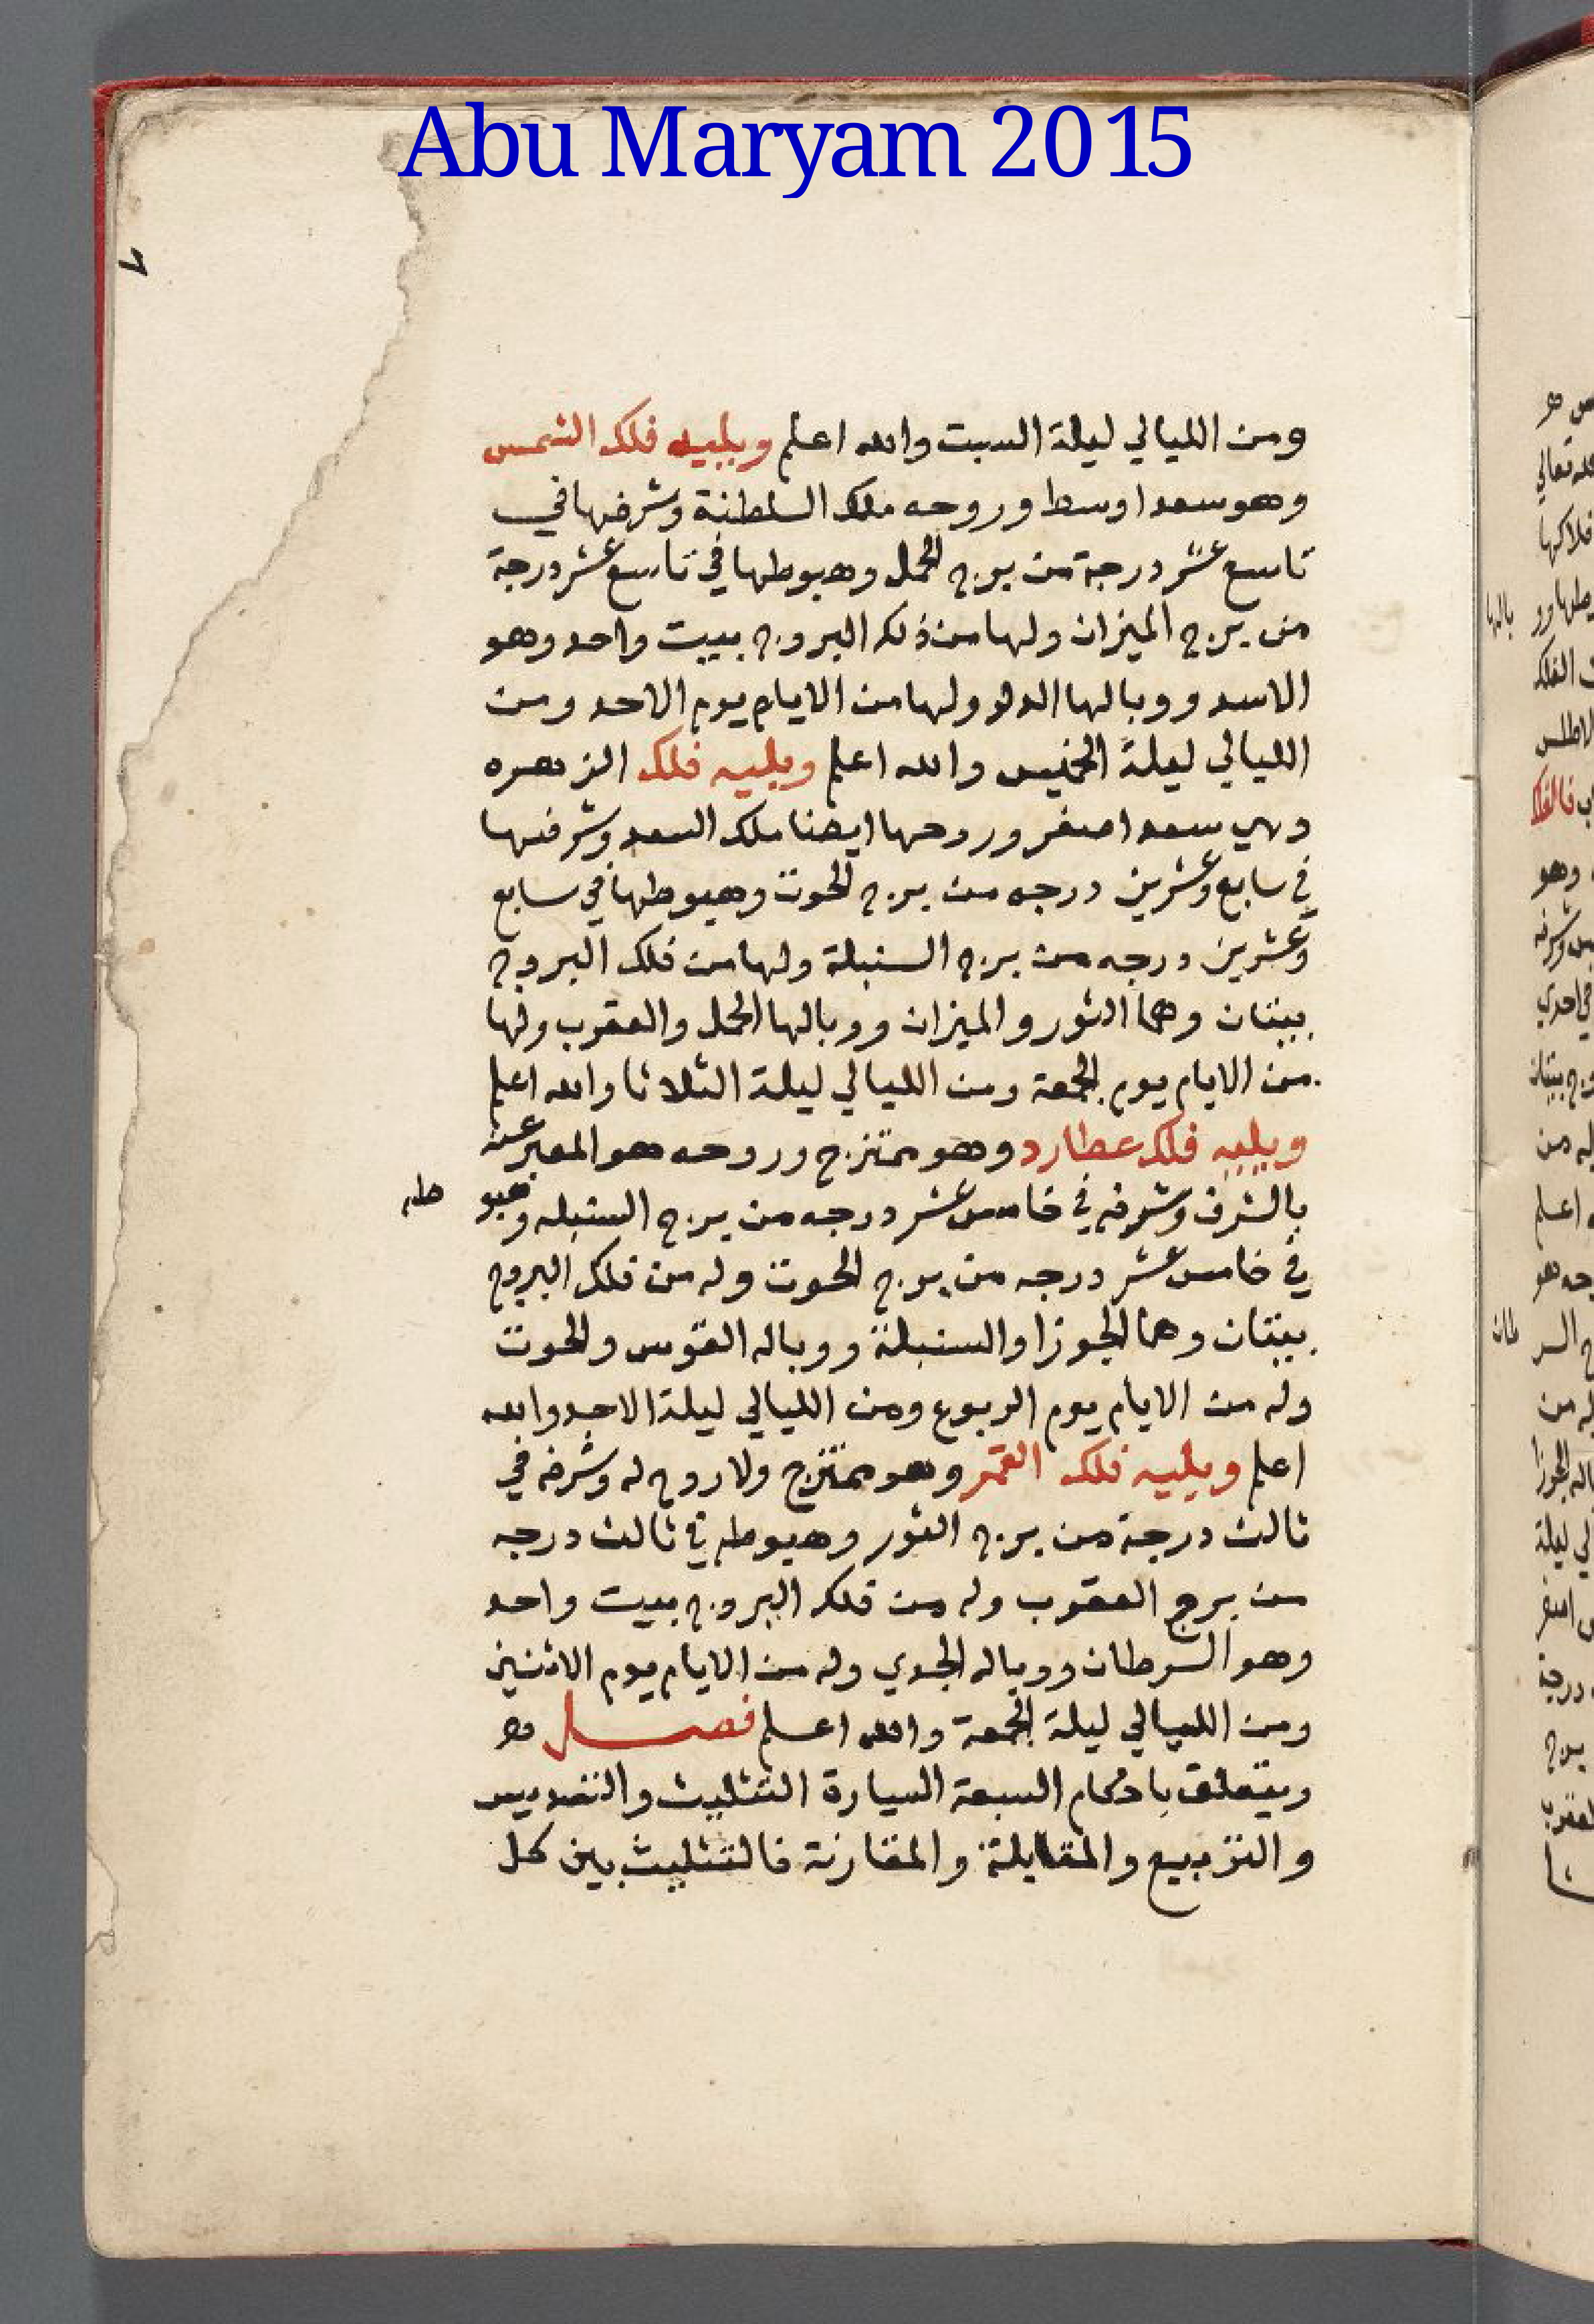 Abu Maryam 2015
ومن الليالي ليلة السبت والله اعلم ويليه فلك الشمس
وهو سعد اوسط وروحه ملك السلطنة وشرفها في
تاسع عشر درجة من برج الحمل وهبوطها في تاسع عشر درجة
من برج الميزان ولها من ذلك البروج بيت واحد وهو
الاسد ووبالها الدلو ولها من الايام يوم الاحد ومن
الليالي ليلة الخميس والله اعلم ويليه فلك الزهره
وهي سعد اصغر وروحها ايضا ملك السعد وشرفها
في سابع وعشرين درجه من برج الحوت وهبوطها في سابع
وعشرين درجه من برج السنبلة ولها من فلك البروج
بيتان وهما الثور والميزان ووبالها الحمل والعقرب ولها
من الايام يوم الجمعة ومن الليالي ليلة الثلاثا والله اعلم
ويليه فلك عطارد وهو ممتزج وروحه هو المعبر عنه
بالشرف وشرفه في خامس عشر درجه من برج السنبله وهبو طه
في خامس عشر درجه من برج الحوت وله من فلك البروج
بيتان وهما الجوزا والسنبلة ووباله القوس والحوت
وله من الايام يوم الربوع ومن الليالي ليلة الاحد والله
اعلم ويليه فلك القمر وهو ممتزج ولا روح له وشرفه في
ثالث درجة من برج الثور وهبوطه في ثالث درجه
من برج العقرب وله من فلك البروج بيت واحد
وهو السرطان ووباله الجدي وله من الايام يوم الاثنين
ومن الليالي ليلة الجمعة والله اعلم فصل
ويتعلق باحكام السبعة السيارة التثليث والتسديس
والتربيع والمقابلة والمقارنة فالتثليث بين كل